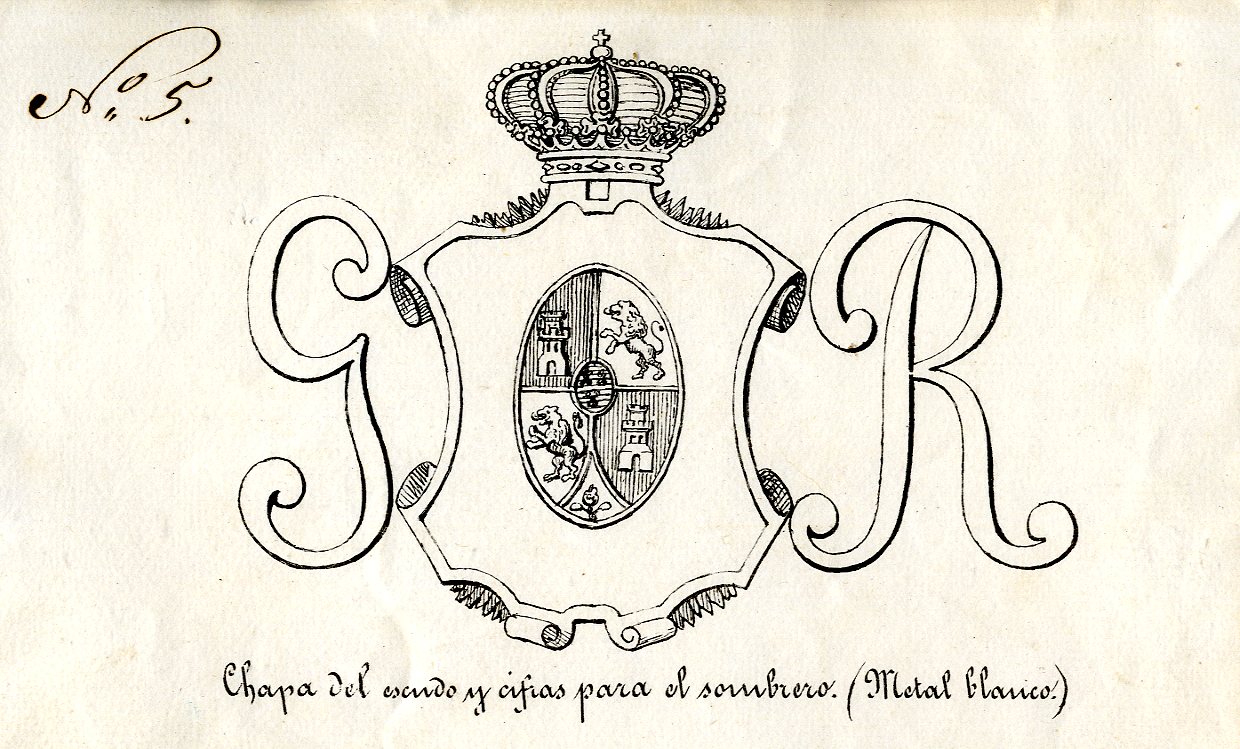 Nº 5.
G R
Chapa del escudo y cifras para el sombrero. (Metal blanco.)